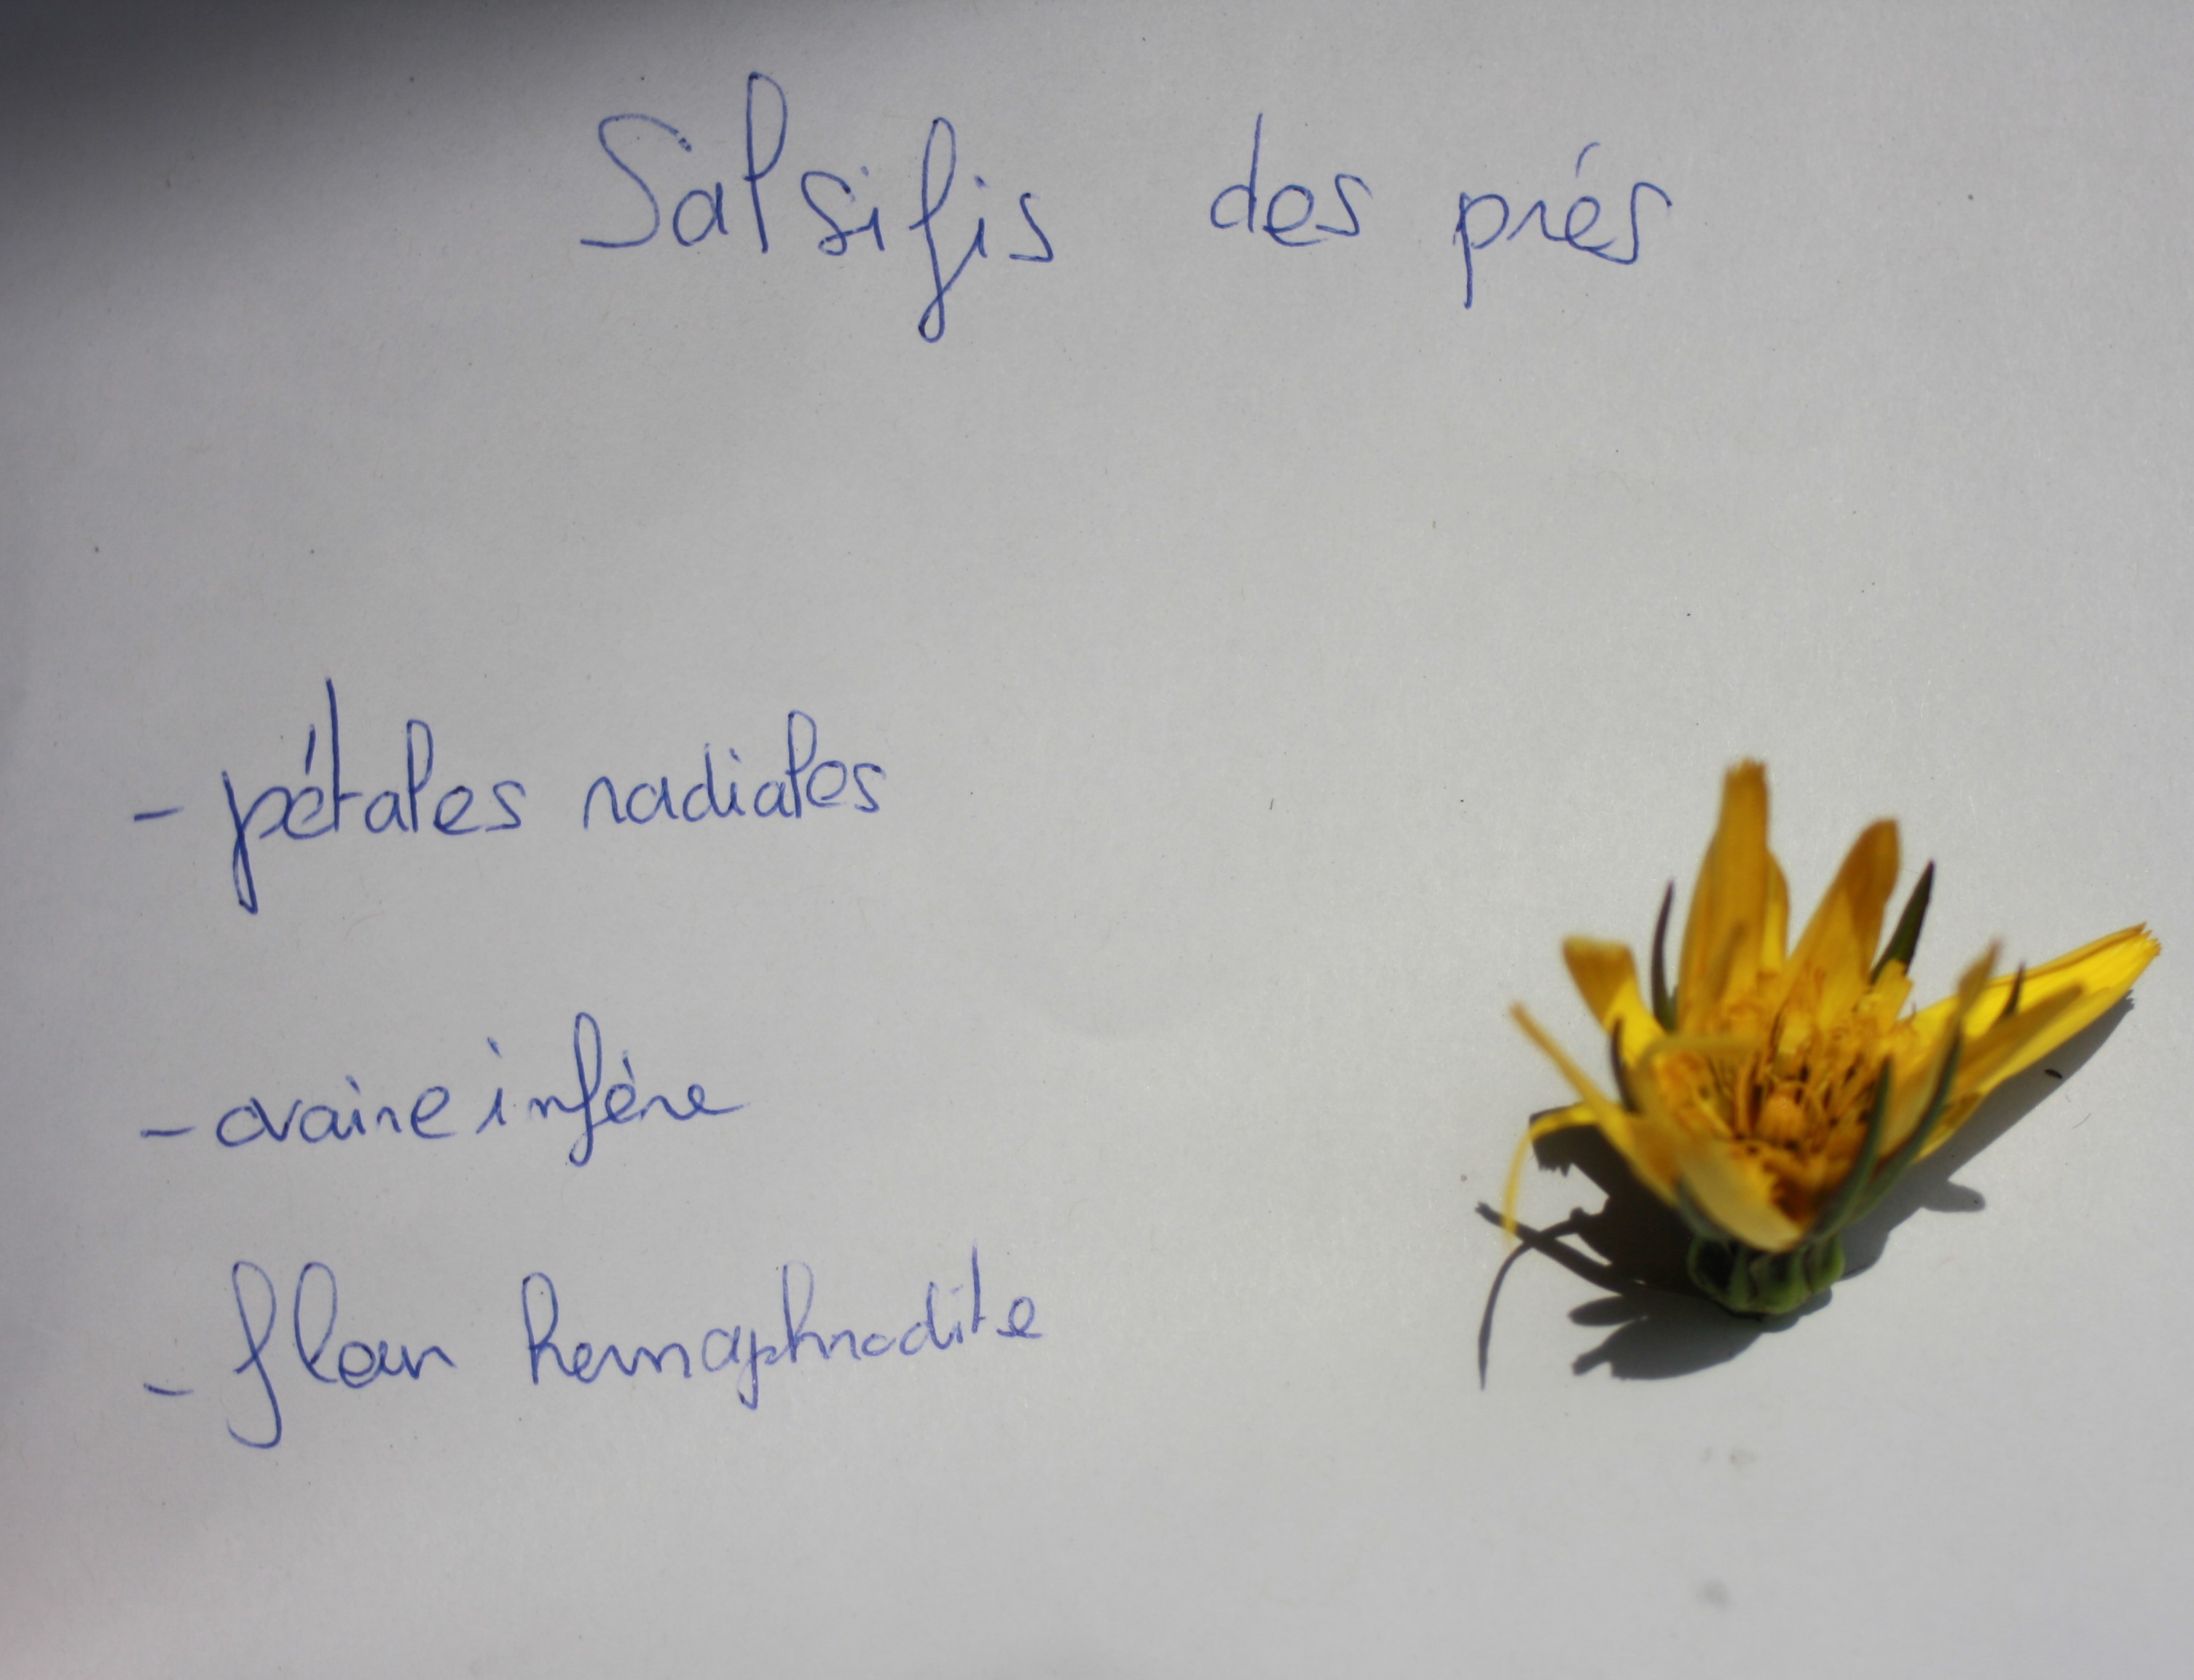 Salsifis des prés
- pétales radiales
- ovaire infère
- fleur hermaphrodite